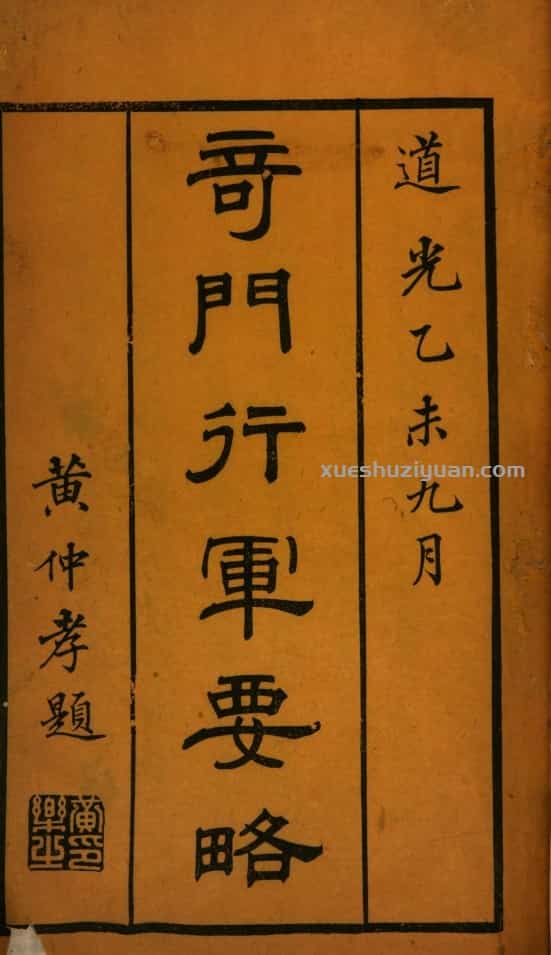 道光乙未九月
竒門行軍要略
黄仲孝題
黄印樂之
xueshuziyuan.com